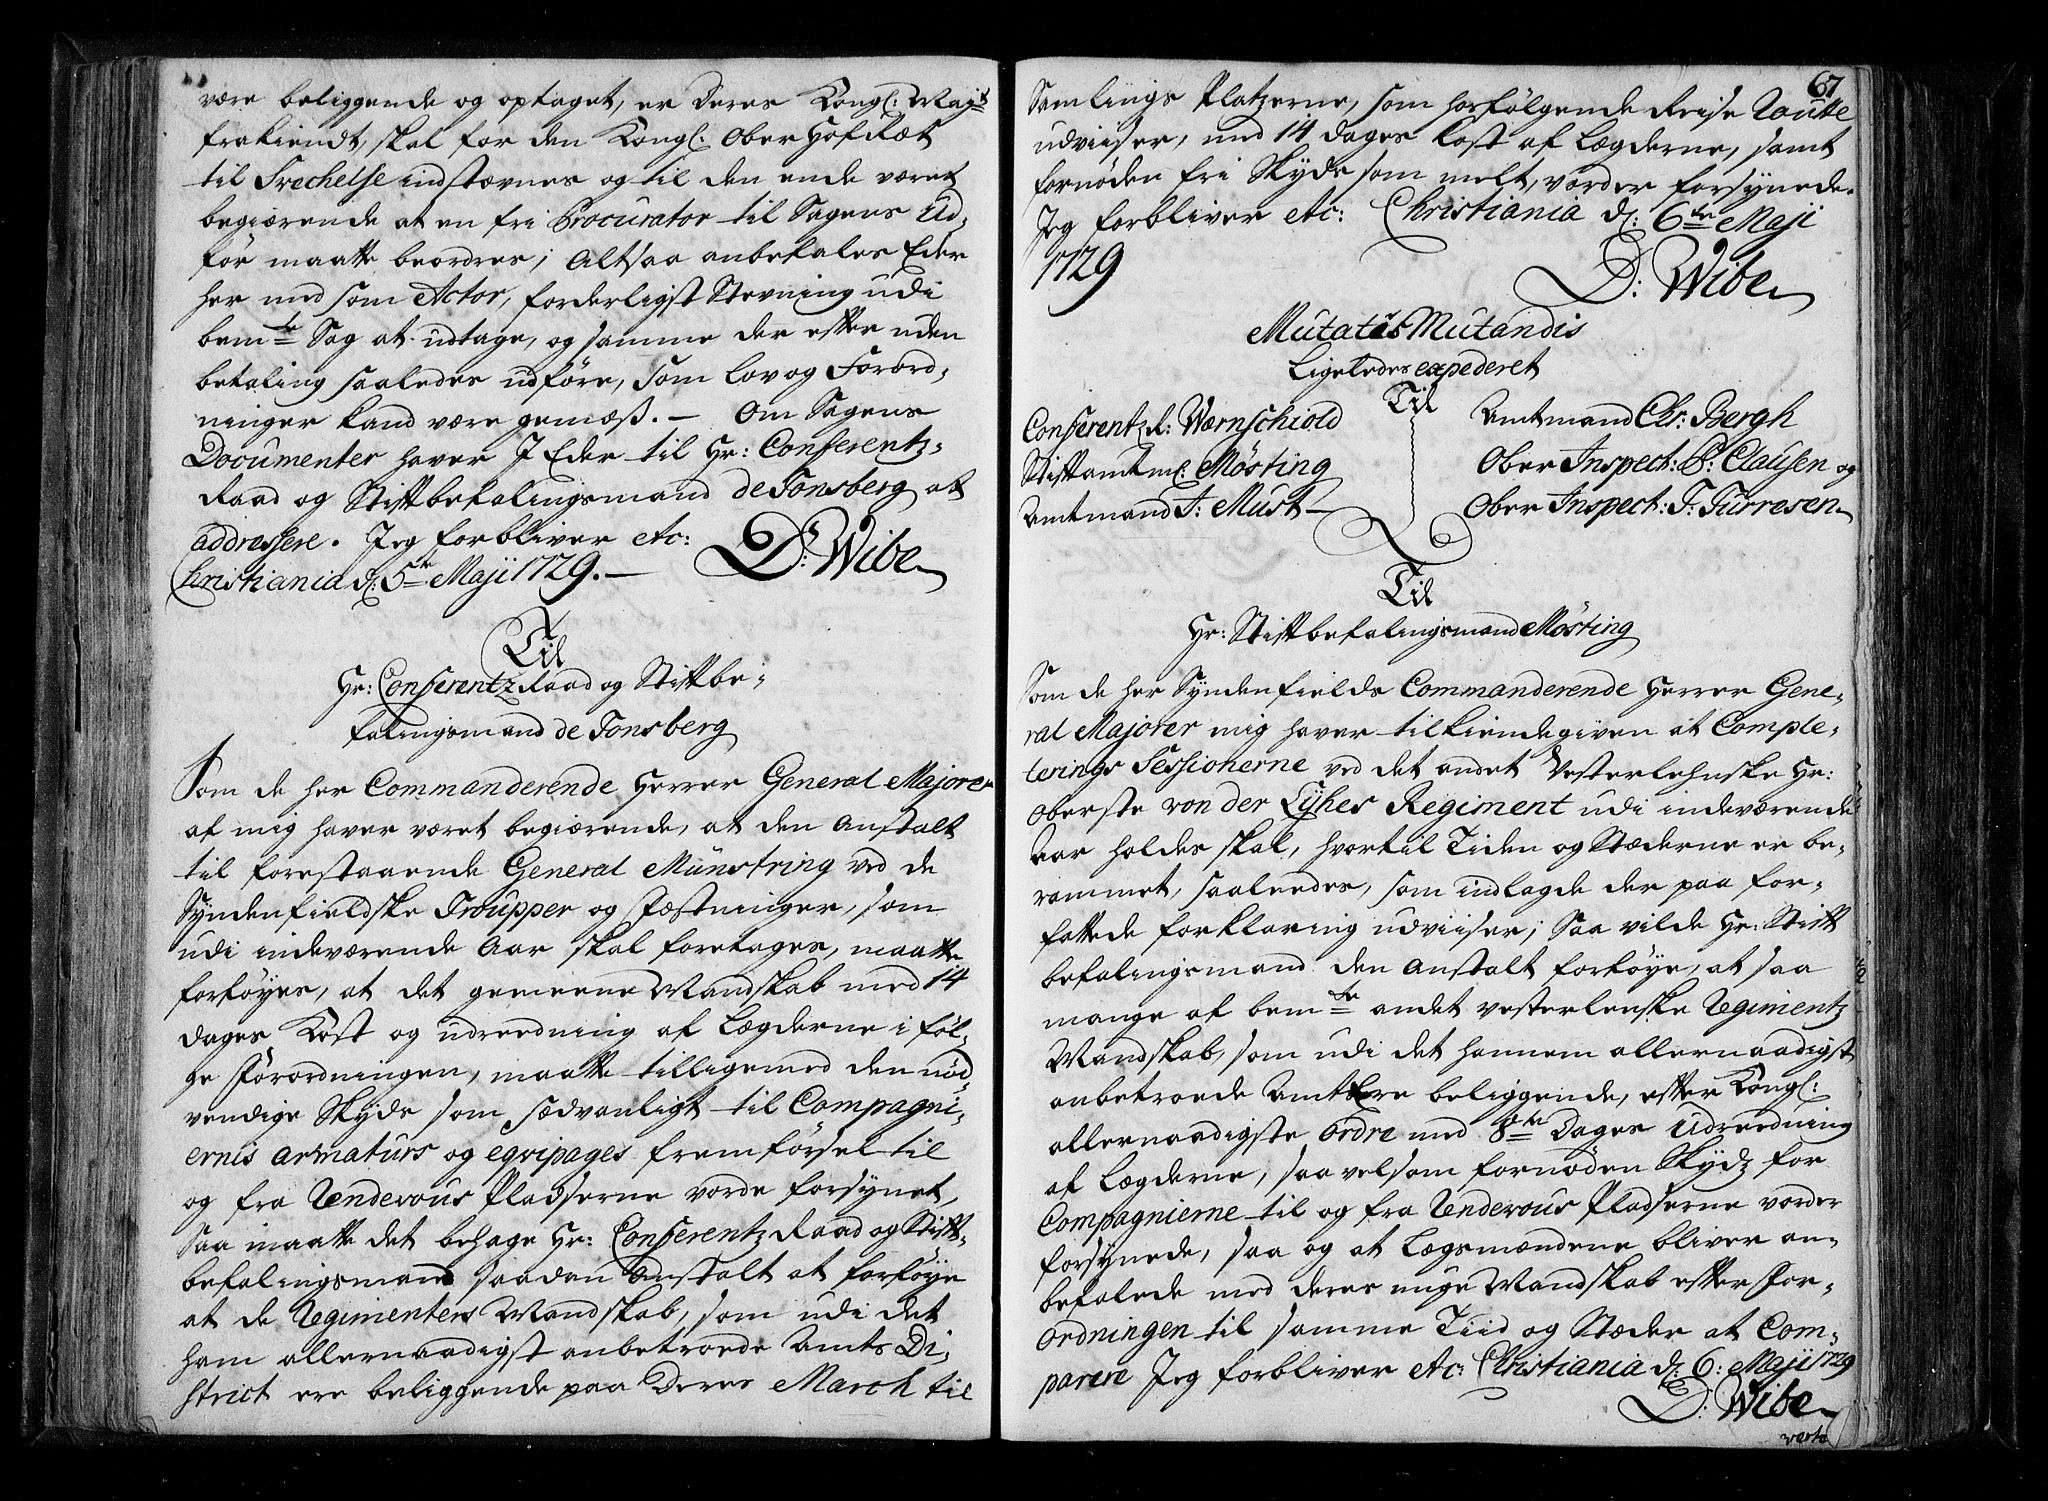 være beliggende og optaget, er Deres Kongl: Mayts
frakiendt, skal for den Kongl: Ober Hof Ræt
til Trechelse indstævnes og til den ende været
begiærende at en fri Procurator til Sagens Ud-
før maatte beordres; Altsaa anbefales Eder
her med som Actor, forderligst Stevning udi
bemte Sag at udtage, og samme der efter uden
betaling saaledes udføre, som lov og Forord-
ninger kand være gemæß. — Om Sagens
Documenter haver I Eder til Hr: Conferentz-
Raad og Stiftbefalingsmand de Tonsberg at
addressere. Jeg forbliver etc:
Christiania d: 5te Maji 1729. — D: Wibe
Til
Hr: Conferentz Raad og Stiftbe-
falingsmand de Tonsberg
Som de her Commanderende Herrer General Majorer
af mig haver været begiærende, at den Anstalt
til forestaaende General Münstring ved de
Syndenfieldske Troupper og Fæstninger, som
udi indeværende Aar skal foretages, maatte
forføyes, at det gemeene Mandskab med 14
dages Kost og udreedning af Lægderne i føl-
ge Forordningen, maatte tilligemed den nød-
vendige Skyds som sædvanligt til Compagni-
ernis armaturs og eqvipages fremførsel til
og fra Rendevous Pladserne vorde forsynet,
Saa maatte det behage Hr: Conferentz Raad og Stift-
befalingsmand saadan Anstalt at forføye
at de Regimenters Mandskab, som udi det
ham allernaadigst anbetroede Amts Di-
strict ere beliggende paa Deres March til
67
Samlings Platzerne, som hosfølgende Reise Route
udviiser, med 14 dages Kost af Lægderne, samt
fornøden fri Skyds som melt, vorder forsynede.
Jeg forbliver etc: Christiania d: 6te Maji
1729
D: Wibe
Mutatis Mutandis
Ligeledes expederet
Til
Conferentz R: Wærnschiold
Stiftamtm: Møsting
Amtmand J: Must —
Amtmand Chr: Bergh
Ober Inspect: P: Clausen og
Ober Inspect: F: Türresen
Til
Hr: Stiftbefalingsmand Møsting
Som de her Syndenfields Commanderende Herrer Gene-
ral Majorer mig haver tilkiendegiven at Comple-
terings Sessionerne ved det andet Vesterlehnske Hr:
Oberste von der Lÿhes Regiment udi indeværende
Aar holdes skal, hvortil Tiden og Stæderne er be-
rammet, saaleedes, som indlagde der paa for-
fattede forklaring udviiser; Saa vilde Hr: Stift
befalingsmand den Anstalt forføye, at saa
mange af bemte andet vesterlenske Regimentz
Mandskab, som udi det hannem allernaadigst
anbetroede Amt Ere beliggende, efter Kongl:
allernaadigste Ordre med 8te Dages Udreedning
af Lægderne, saavelsom fornøden Skydz for
Compagnierne til og fra Rendevous Pladserne vorder
forsynede, saa og at Lægsmændene bliver an-
befalede med deres unge Mandskab efter For-
ordningen til samme Tiid og Stæder at Com-
parere Jeg forbliver etc: Christiania d: 6: Maji 1729
D: Wibe
verte